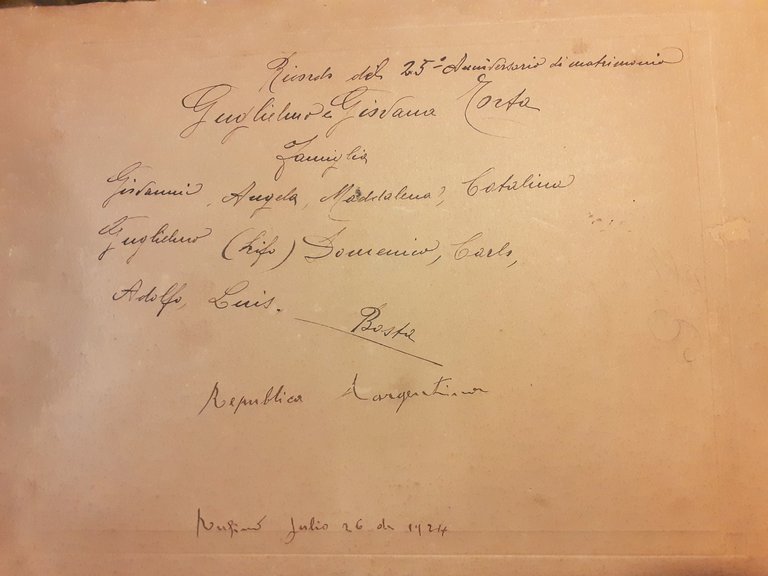 Ricordo del 25º Anniversario di matrimonio
Guglielmo e Giovana
Famiglia
Giovanni, Angela, Maddalena, Catalina
Guglielmo (hifo) Domenico, Carlo,
Adolfo, Luis.
Republica Argentina
Rufino Julio 26 de 1924